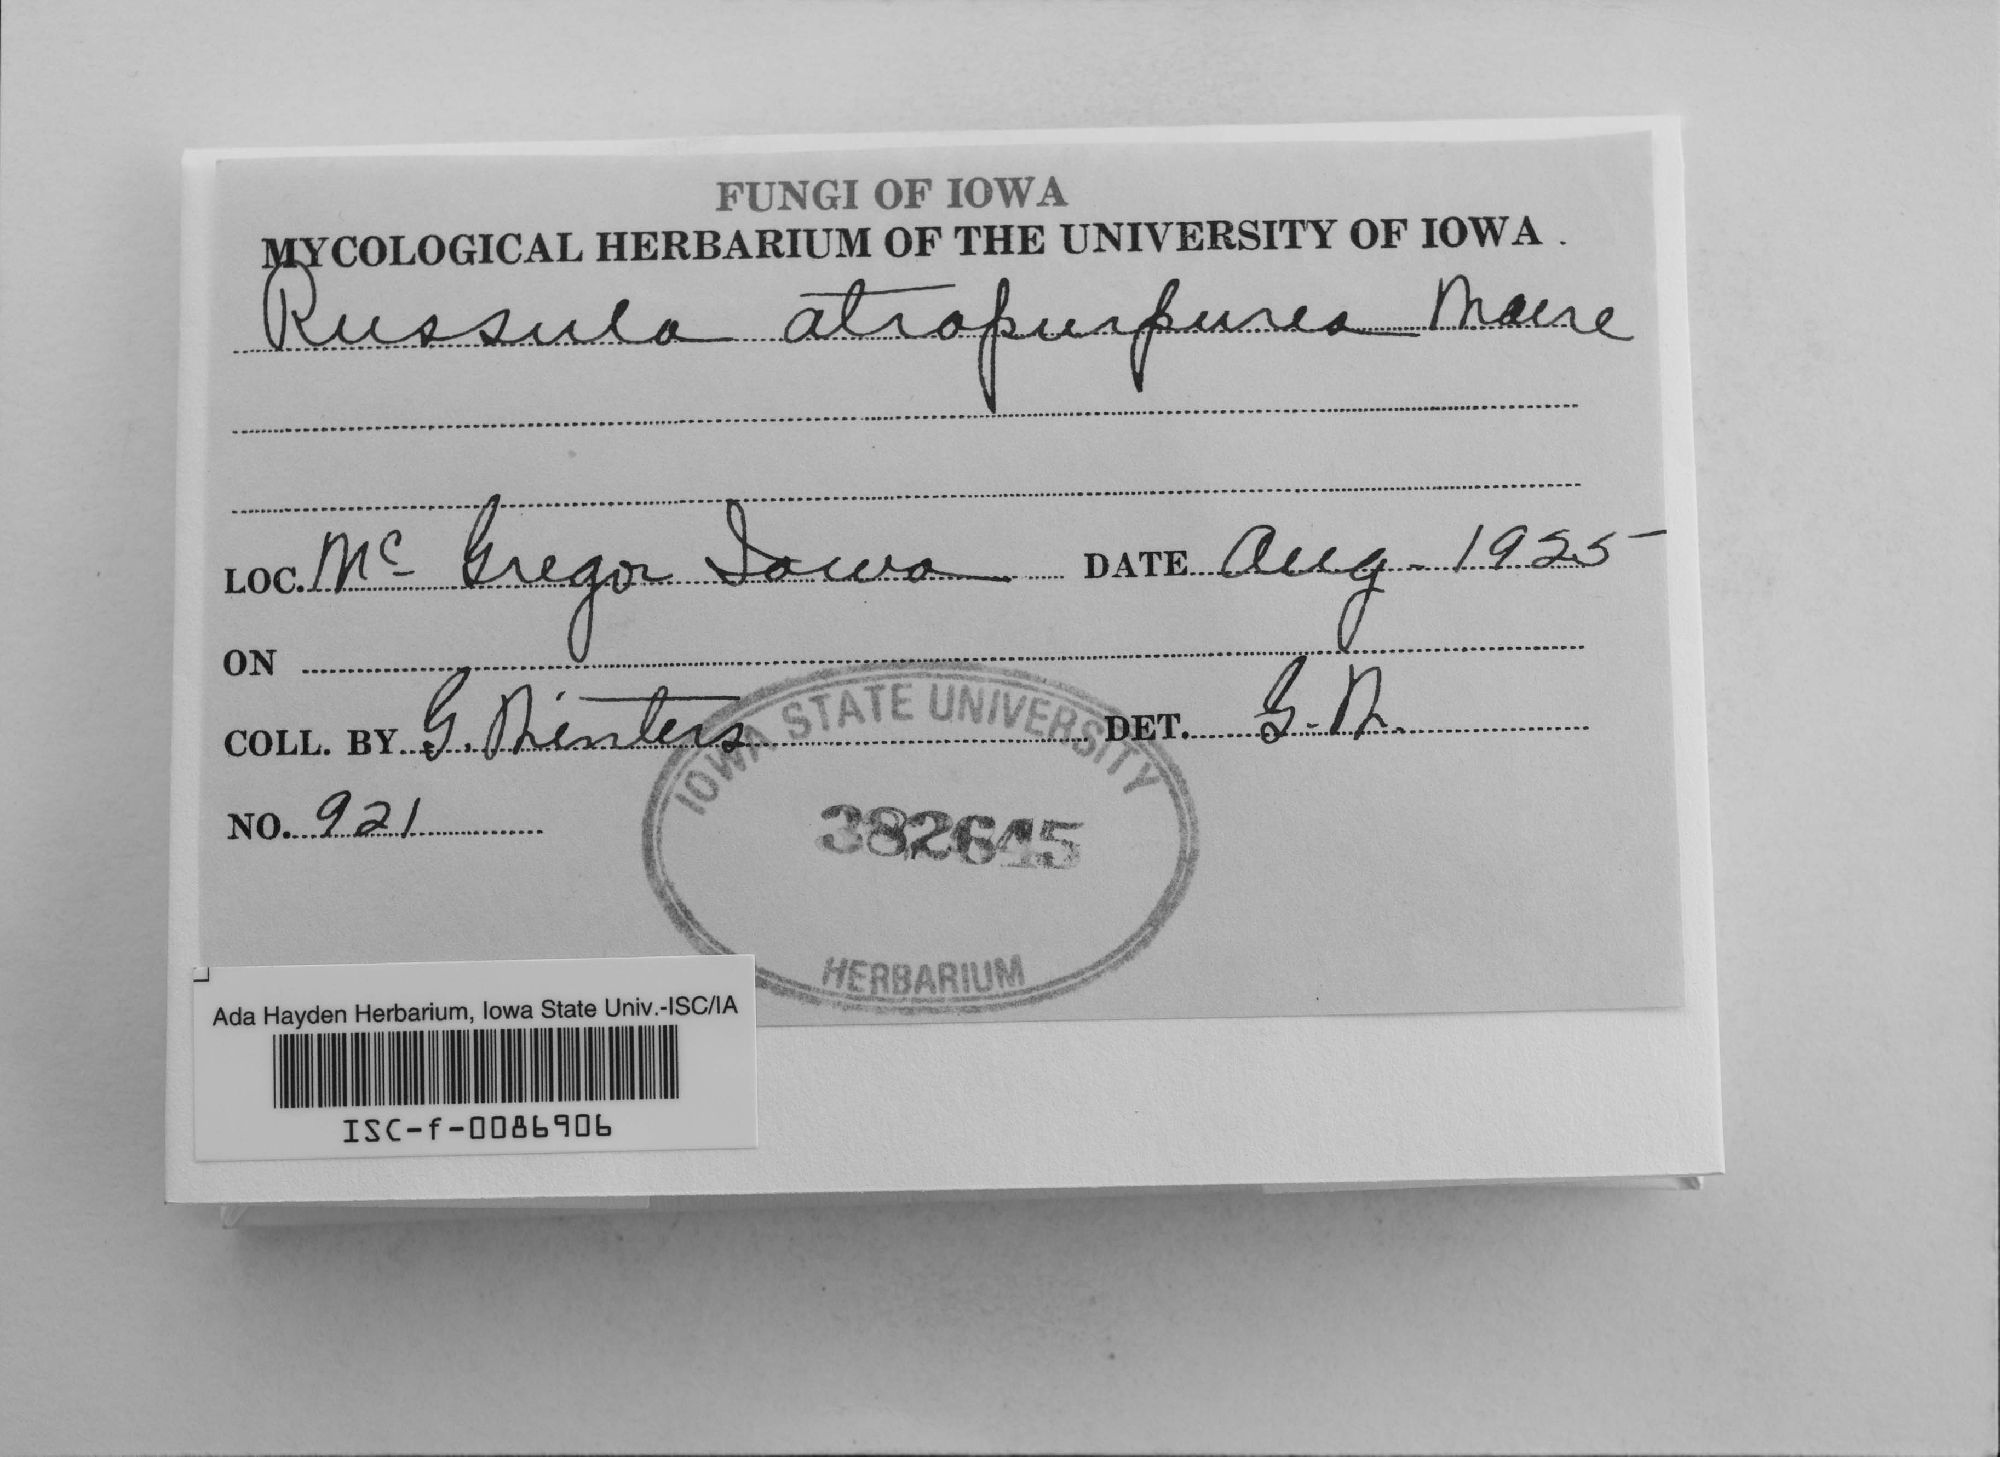 FUNGI OF IOWA
MYCOLOGICAL HERBARIUM OF THE UNIVERSITY OF IOWA .
Russula atropurpurea Maire
LOC. Mc Gregor Iowa DATE Aug. 1925
ON
COLL. BY G. DET.
NO. 921
IOWA STATE UNIVERSITY
382645
HERBARIUM
Ada Hayden Herbarium, Iowa State Univ.-ISC/IA
ISC-f-0086906